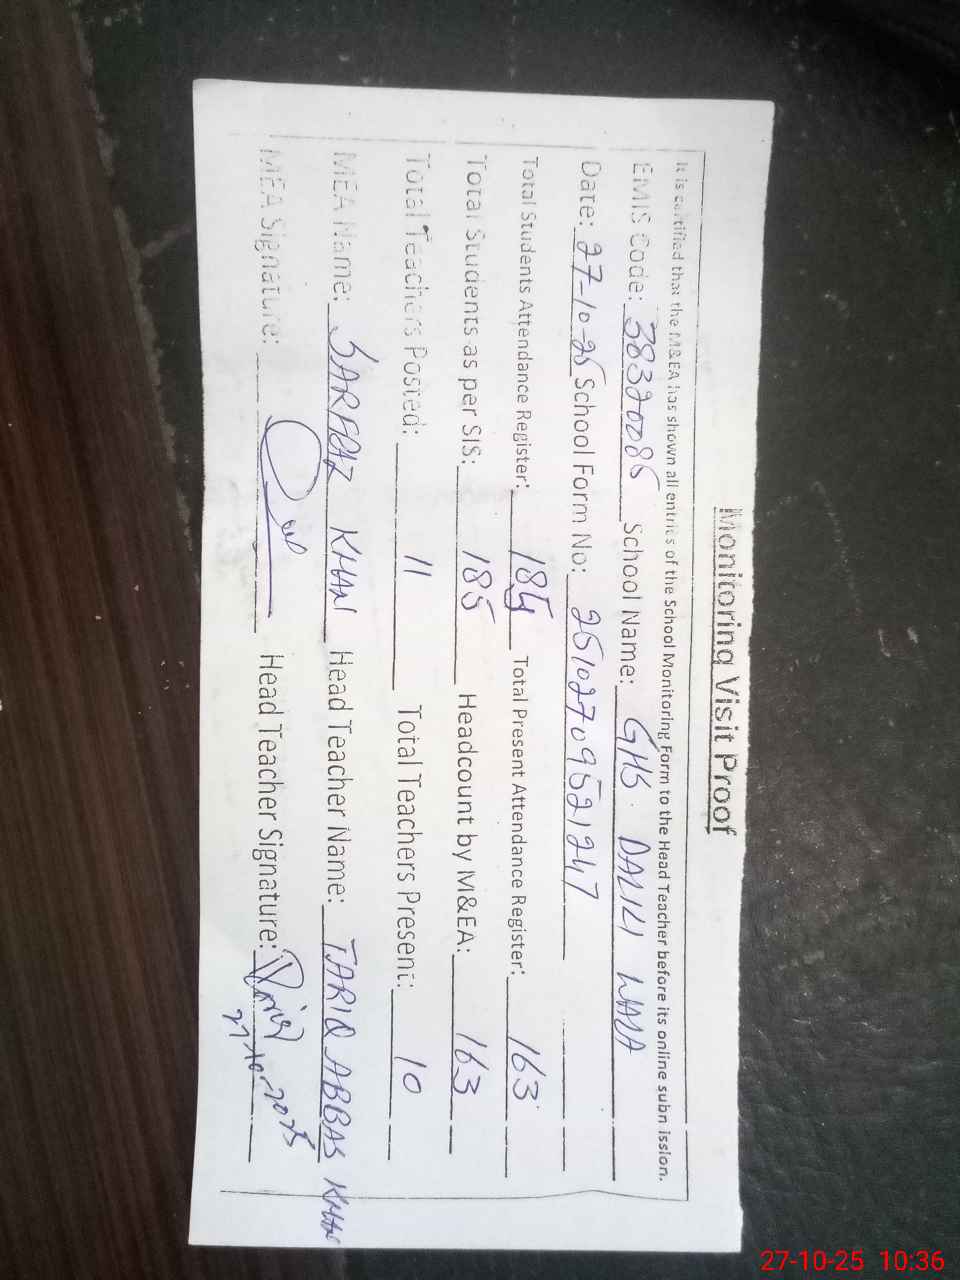 Monitoring Visit Proof
It is certified that the M&EA has shown all entries of the School Monitoring Form to the Head Teacher before its online subn ission.
EMIS Code: 38320085 School Name: GHS DALILI WALA
Date: 27-10-25 School Form No: 25102709521247
Total Students Attendance Register: 185 Total Present Attendance Register: 163
Total Students as per SIS: 185 Headcount by M&EA: 163
Total Teachers Posted: 11 Total Teachers Present: 10
MEA Name: SARFRAZ KHAN Head Teacher Name: TARIQ ABBAS KHAN
MEA Signature: Head Teacher Signature:
27-10-2025
27-10-25 10:36